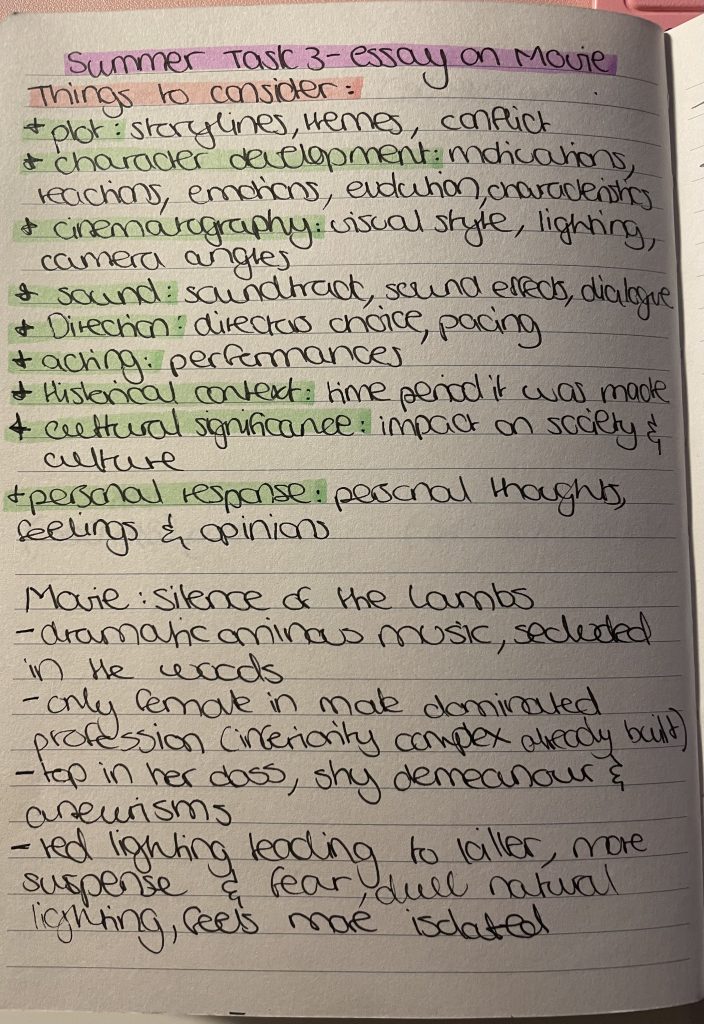 Summer Task 3 - essay on Movie
Things to consider:
+ plot: storylines, themes, conflict
+ character development: motivations,
reactions, emotions, evolution, characteristics
+ cinematography: visual style, lighting,
camera angles
+ sound: soundtrack, sound effects, dialogue
+ Direction: directors choice, pacing
+ acting: performances
+ Historical context: time period it was made
+ cultural significance: impact on society &
culture
+ personal response: personal thoughts,
feelings & opinions
Movie: Silence of the Lambs
- dramatic ominous music, secluded
in the woods
- only female in male dominated
profession (inferiority complex already built)
- top in her class, shy demeanour &
aneurisms
- red lighting leading to killer, more
suspense & fear, dull natural
lighting, feels more isolated